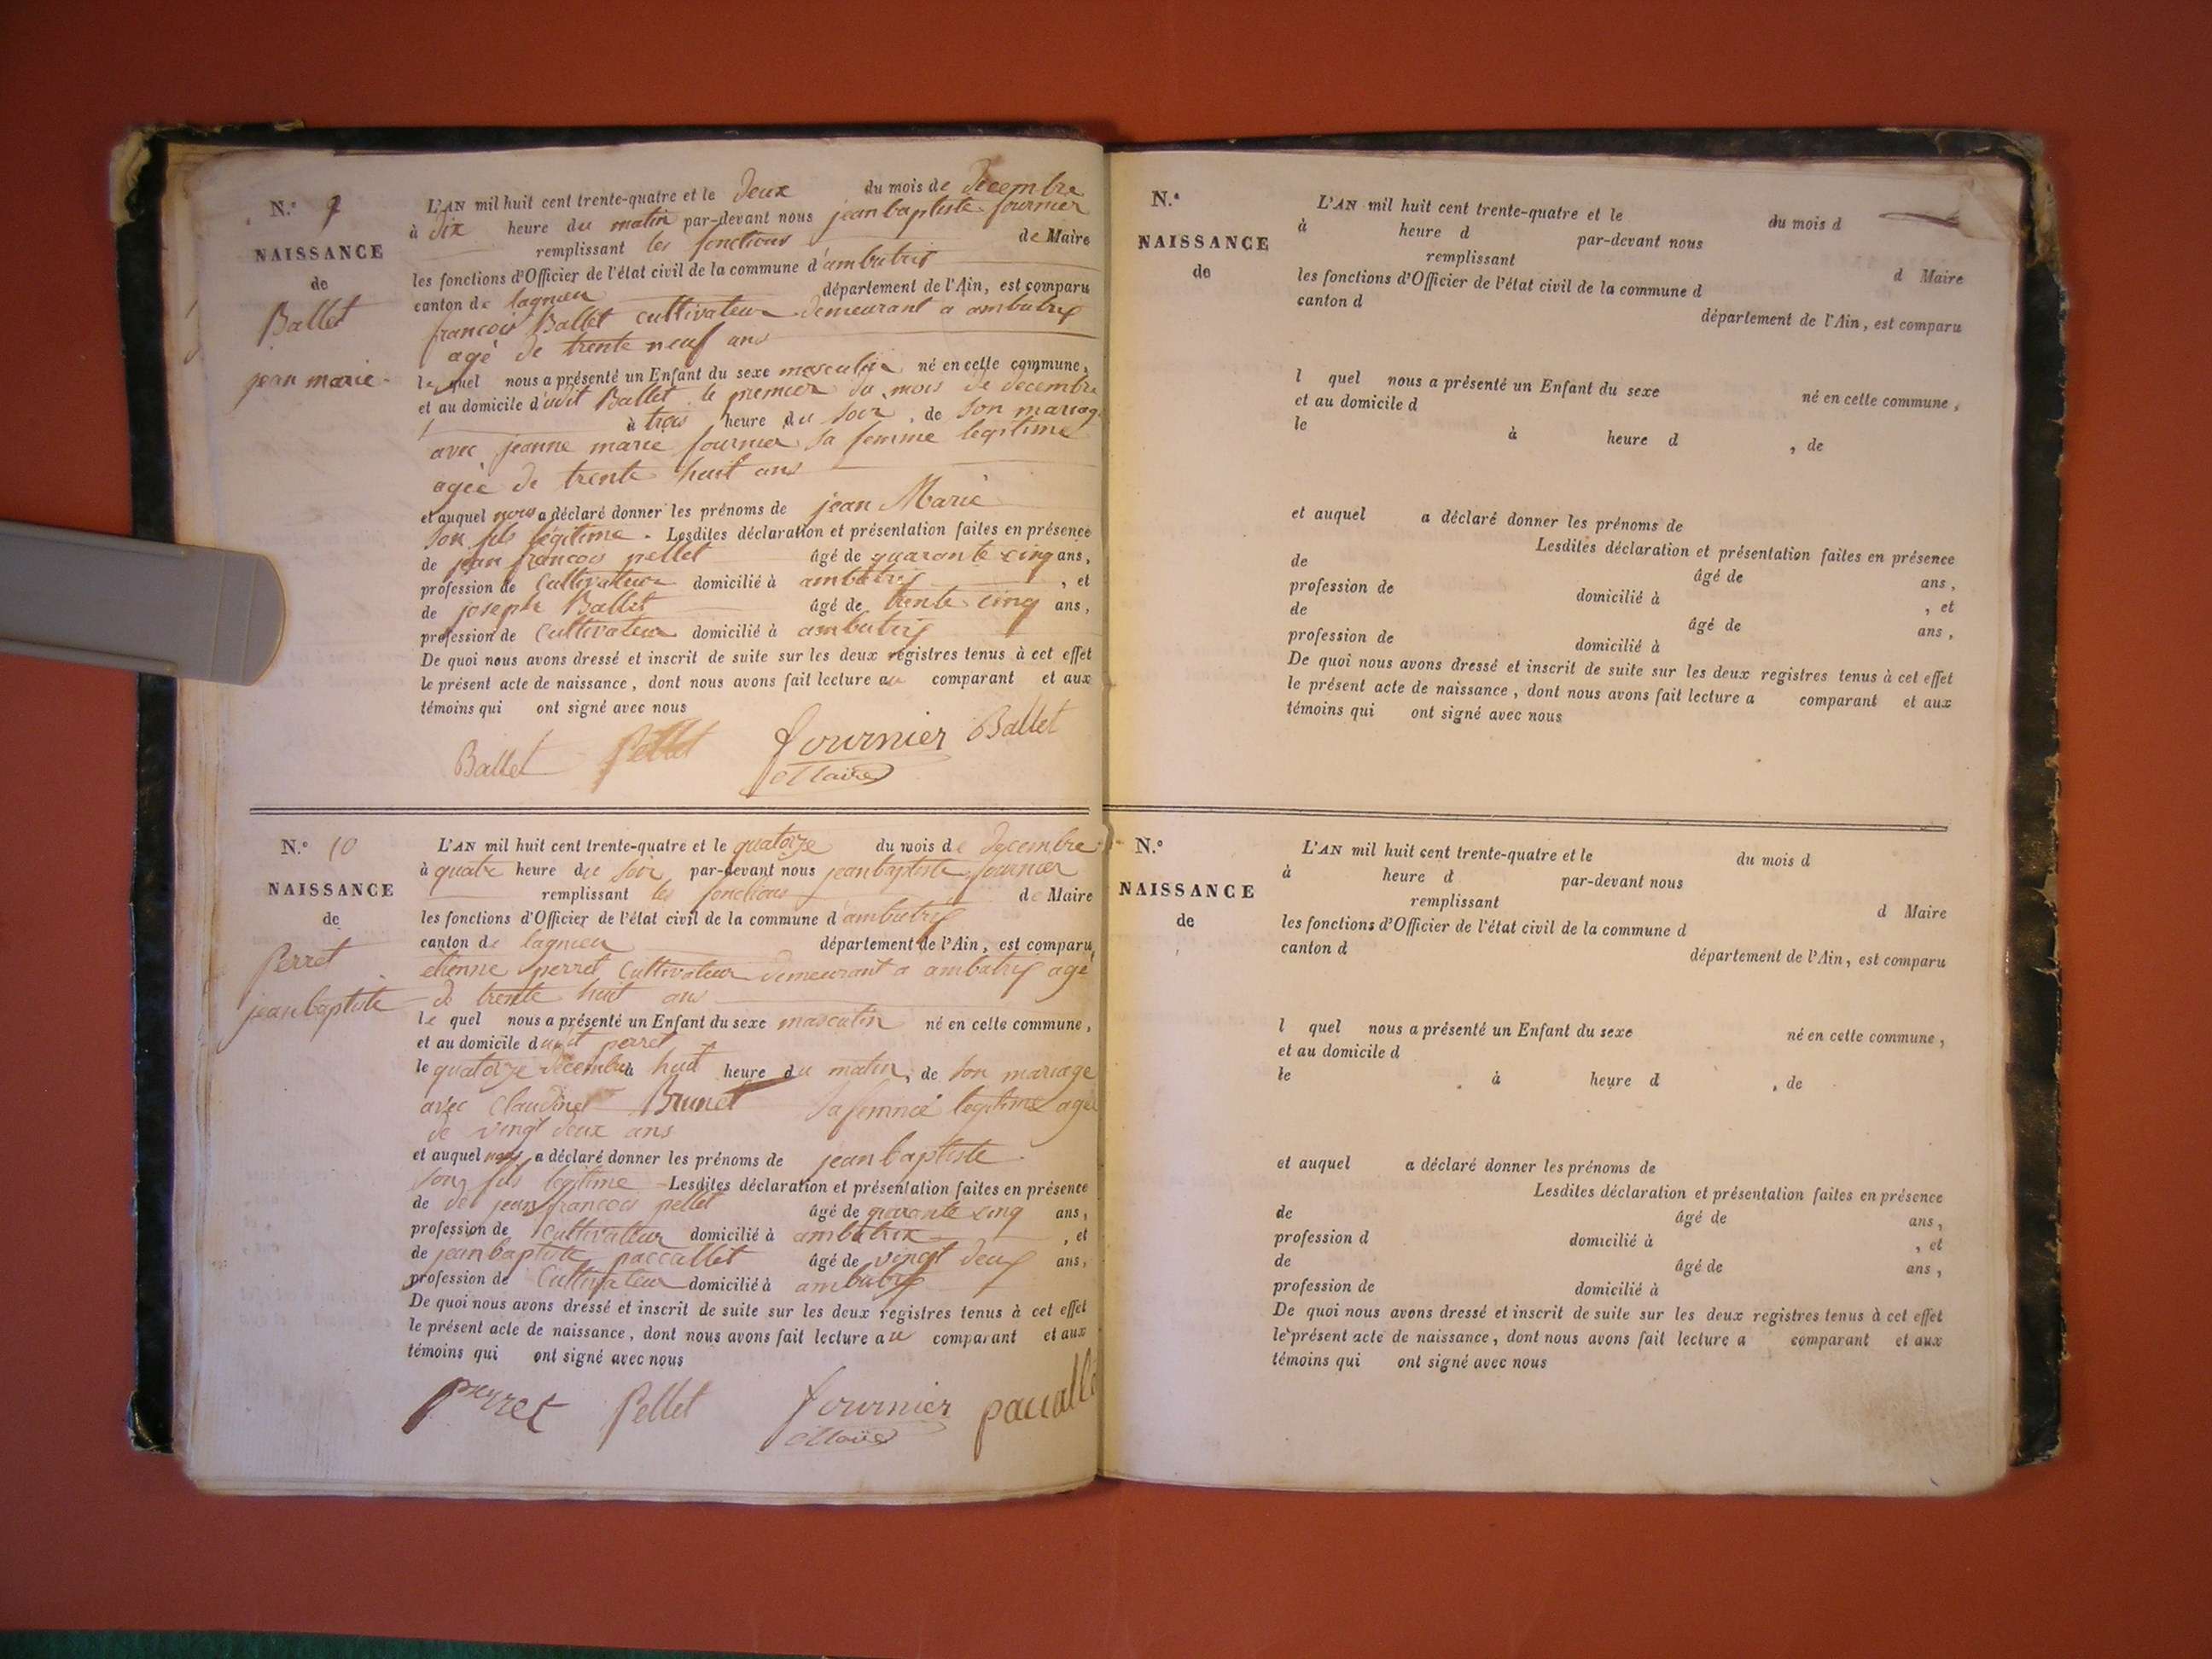 N.° 9
NAISSANCE
de
Ballet
jean marie
L'AN mil huit cent trente-quatre et le deux du mois de decembre
à dix heure du matin par-devant nous jean baptiste fournier
remplissant les fonctions de Maire
les fonctions d'Officier de l'état civil de la commune d'ambutrix
canton de lagnieu département de l'Ain, est comparu
francois Ballet cultivateur demeurant a ambutrix
agé de trente neuf ans
lequel nous a présenté un Enfant du sexe masculin né en cette commune,
et au domicile dudit Ballet le premier du mois de decembre
à trois heure du soir, de son mariage
avec jeanne marie fournier sa femme legitime
agée de trente huit ans
et auquel nous a déclaré donner les prénoms de jean Marie
son fils légitime. Lesdites déclaration et présentation faites en présence
de jean francois pellet âgé de quarante cinq ans,
profession de Cultivateur domicilié à ambutrix, et
de joseph Ballet âgé de trente cinq ans,
profession de Cultivateur domicilié à ambutrix
De quoi nous avons dressé et inscrit de suite sur les deux registres tenus à cet effet
le présent acte de naissance, dont nous avons fait lecture au comparant et aux
témoins qui ont signé avec nous
Ballet Pellet fournier Ballet
Maire
N.° 10
NAISSANCE
de
Perret
jean baptiste
L'AN mil huit cent trente-quatre et le quatorze du mois de decembre
à quatre heure du soir par-devant nous jean baptiste fournier
remplissant les fonctions de Maire
les fonctions d'Officier de l'état civil de la commune d'ambutrix
canton de lagnieu département de l'Ain, est comparu
etienne perret Cultivateur demeurant a ambutrix agé
de trente huit ans
le quel nous a présenté un Enfant du sexe masculin né en cette commune,
et au domicile dudit perret
le quatorze decembre à huit heure du matin, de son mariage
avec Claudine Brunet sa femme legitime agée
de vingt deux ans
et auquel nous a déclaré donner les prénoms de jean baptiste
son fils legitime Lesdites déclaration et présentation faites en présence
de de jean francois pellet âgé de quarante cinq ans,
profession de Cultivateur domicilié à ambutrix, et
de jean baptiste paccallet âgé de vingt deux ans,
profession de Cultivateur domicilié à ambutrix
De quoi nous avons dressé et inscrit de suite sur les deux registres tenus à cet effet
le présent acte de naissance, dont nous avons fait lecture au comparant et aux
témoins qui ont signé avec nous
perret Pellet fournier
Maire
N.°
NAISSANCE
de
L'AN mil huit cent trente-quatre et le du mois d
à heure d par-devant nous
remplissant d Maire
les fonctions d'Officier de l'état civil de la commune d
canton d département de l'Ain, est comparu
l quel nous a présenté un Enfant du sexe né en cette commune,
et au domicile d
le à heure d , de
et auquel a déclaré donner les prénoms de
Lesdites déclaration et présentation faites en présence
de âgé de ans,
profession de domicilié à , et
de âgé de ans,
profession de domicilié à
De quoi nous avons dressé et inscrit de suite sur les deux registres tenus à cet effet
le présent acte de naissance, dont nous avons fait lecture a comparant et aux
témoins qui ont signé avec nous
N.°
NAISSANCE
de
L'AN mil huit cent trente-quatre et le du mois d
à heure d par-devant nous
remplissant d Maire
les fonctions d'Officier de l'état civil de la commune d
canton d département de l'Ain, est comparu
l quel nous a présenté un Enfant du sexe né en cette commune,
et au domicile d
le à heure d , de
et auquel a déclaré donner les prénoms de
Lesdites déclaration et présentation faites en présence
de âgé de ans,
profession d domicilié à , et
de âgé de ans,
profession de domicilié à
De quoi nous avons dressé et inscrit de suite sur les deux registres tenus à cet effet
le présent acte de naissance, dont nous avons fait lecture a comparant et aux
témoins qui ont signé avec nous